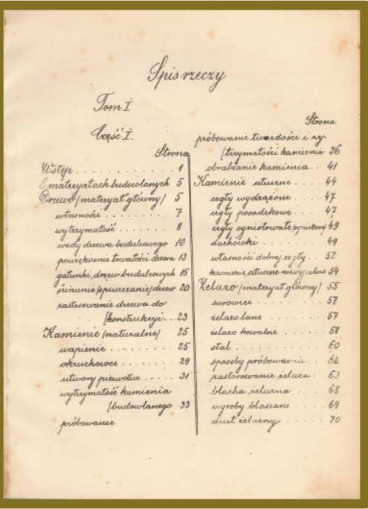 Spis rzeczy
Tom I.
Część I.
Strona
Wstęp . . . . . . . 1
O materyałach budowlanych 5
Drzewo (materyał główny) 5
własności . . . . . . 7
wytrzymałość . . . . . 8
wady drzewa budulcowego 10
powiększenie trwałości drzewa 13
gatunki drzew budulcowych 15
ścinanie (spuszczanie) drzew 20
zastosowanie drzewa do
[konstrukcyi . . 23
Kamienie (naturalne) 25
wapienie . . . . . . 25
okruchowce . . . . . 29
utwory pierwotne . . . . 31
wytrzymałość kamienia
[budowlanego 33
próbowanee
Strona
próbowanie twardości i wy-
[trzymałości kamienia 36
obrabianie kamienia . . 41
Kamienie sztuczne . . . 44
cegły wydrążone . . . 47
cegły posadzkowe . . . 47
cegły ogniotrwałe 49
dachówki . . . . . 49
własności dobrej cegły . . 52
kamienie sztuczne 54
Żelazo (materyał główny) 55
surowiec . . . . . . 57
żelazo lane . . . . . 57
żelazo kowalne . . . . 58
stal . . . . . . . 60
sposoby próbowania . . 62
zastosowanie żelaza . . 63
blacha żelazna . . . . 68
wyroby blaszane . . . 69
drut żelazny . . . . 70